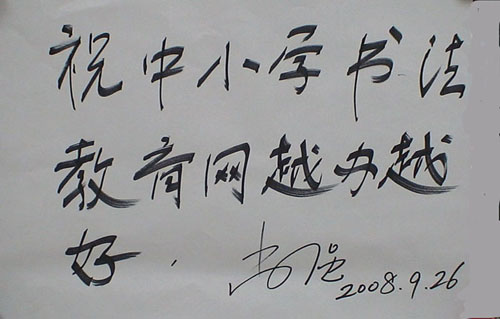 祝中小学书法
教育网越办越
好.
2008.9.26